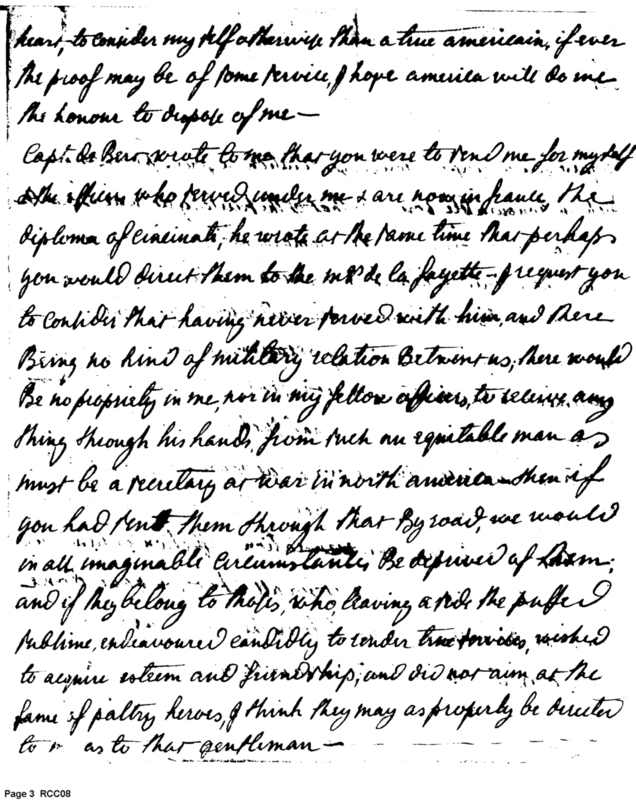 heart, to consider my self otherwise than a true americain, if ever
the proof may be of some service, I hope america will do me
the honour to dispose of me —
Capt. de Bert wrote to me that you were to send me for myself
& the officers who served under me & are now in france, the
diploma of cincinati, he wrote at the same time that perhaps
you would direct them to the mis de la fayette - I request you
to consider that having never served with him, and there
Being no kind of military relation Betwent us, there would
Be no propriety in me, nor in my fellow officers, to receive any
thing through his hands, from such an equitable man as
must be a secretary at war in north america — then if
you had sent them through that By road, we would
in all imaginable circumstantes Be deprived of them;
and if they belong to those, who, leaving a side the puffed
sublime, endeavoured candidly to render true services, wished
to acquire esteem and friendship, and did not aim at the
fame of paltry heroes, I think they may as properly be directed
to as to that gentleman —
Page 3 RCC08